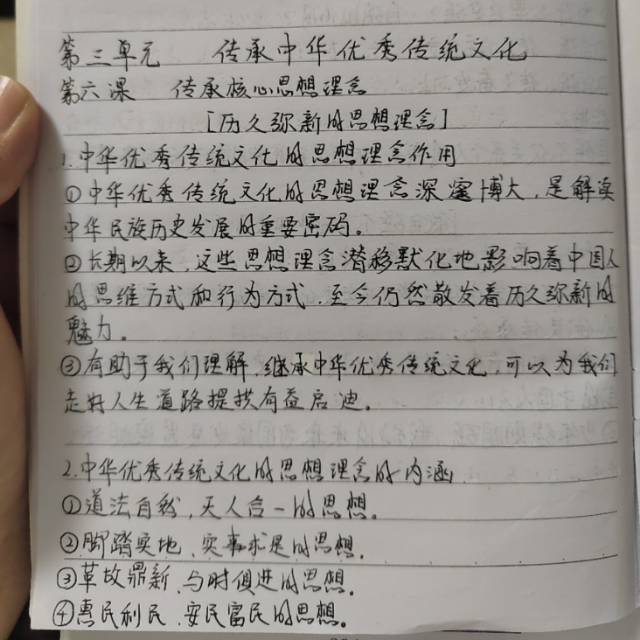 第三单元 传承中华优秀传统文化
第六课 传承核心思想理念
[历久弥新的思想理念]
1.中华优秀传统文化的思想理念作用
①中华优秀传统文化的思想理念深邃博大，是解读
中华民族历史发展的重要密码。
②长期以来，这些思想理念潜移默化地影响着中国人
的思维方式和行为方式，至今仍然散发着历久弥新的
魅力。
③有助于我们理解、继承中华优秀传统文化，可以为我们
走好人生道路提供有益启迪。
2.中华优秀传统文化的思想理念的内涵
①道法自然，天人合一的思想。
②脚踏实地，实事求是的思想。
③革故鼎新，与时俱进的思想。
④惠民利民，安民富民的思想。